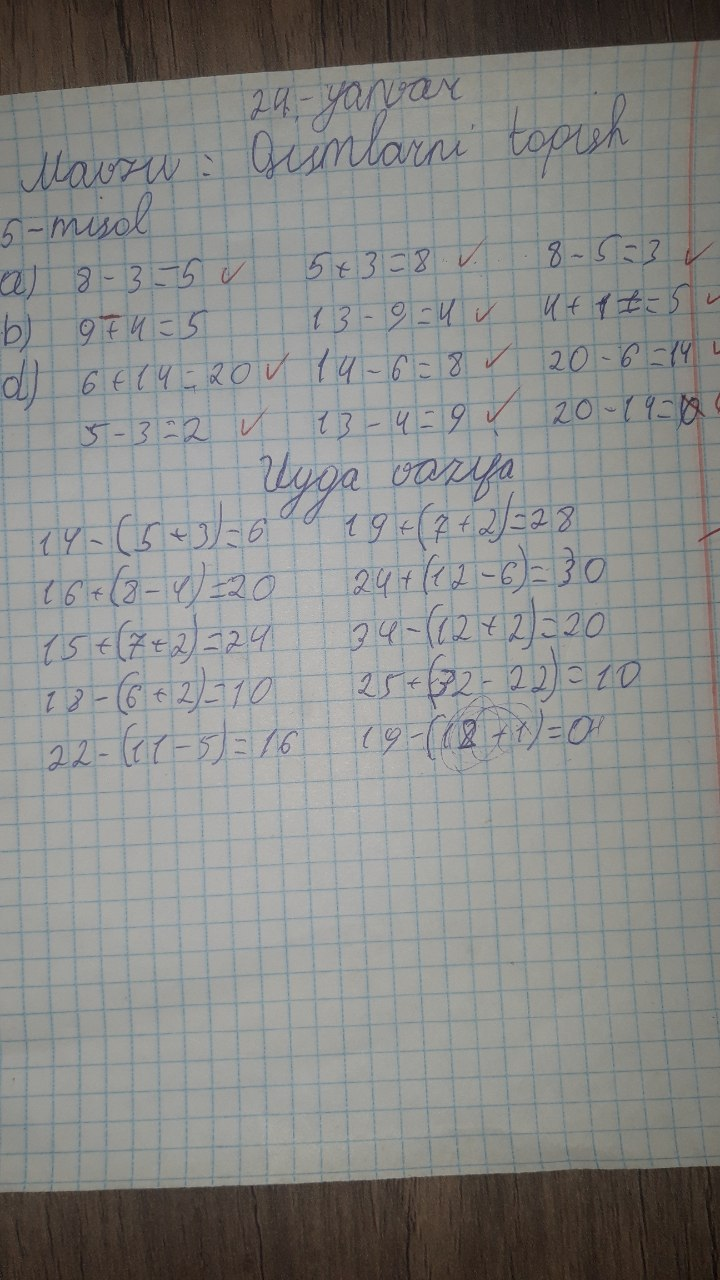 24.-yanvar
Mavzu : Qismlarni topish
5-misol
a) 8-3=5 ✓ 5+3=8 ✓ 8-5=3 ✓
b) 9+4=5 13-9=4 ✓ 4+1=5 ✓
d) 6+14=20 ✓ 14-6=8 ✓ 20-6=14 ✓
5-3=2 ✓ 13-4=9 ✓ 20-14=
Uyga vazifa
14-(5+3)=6 19+(7+2)=28
16+(8-4)=20 24+(12-6)=30
15+(7+2)=24 34-(12+2)=20
18-(6+2)=10 25+(32-22)=10
22-(11-5)=16 19-(18+1)=0